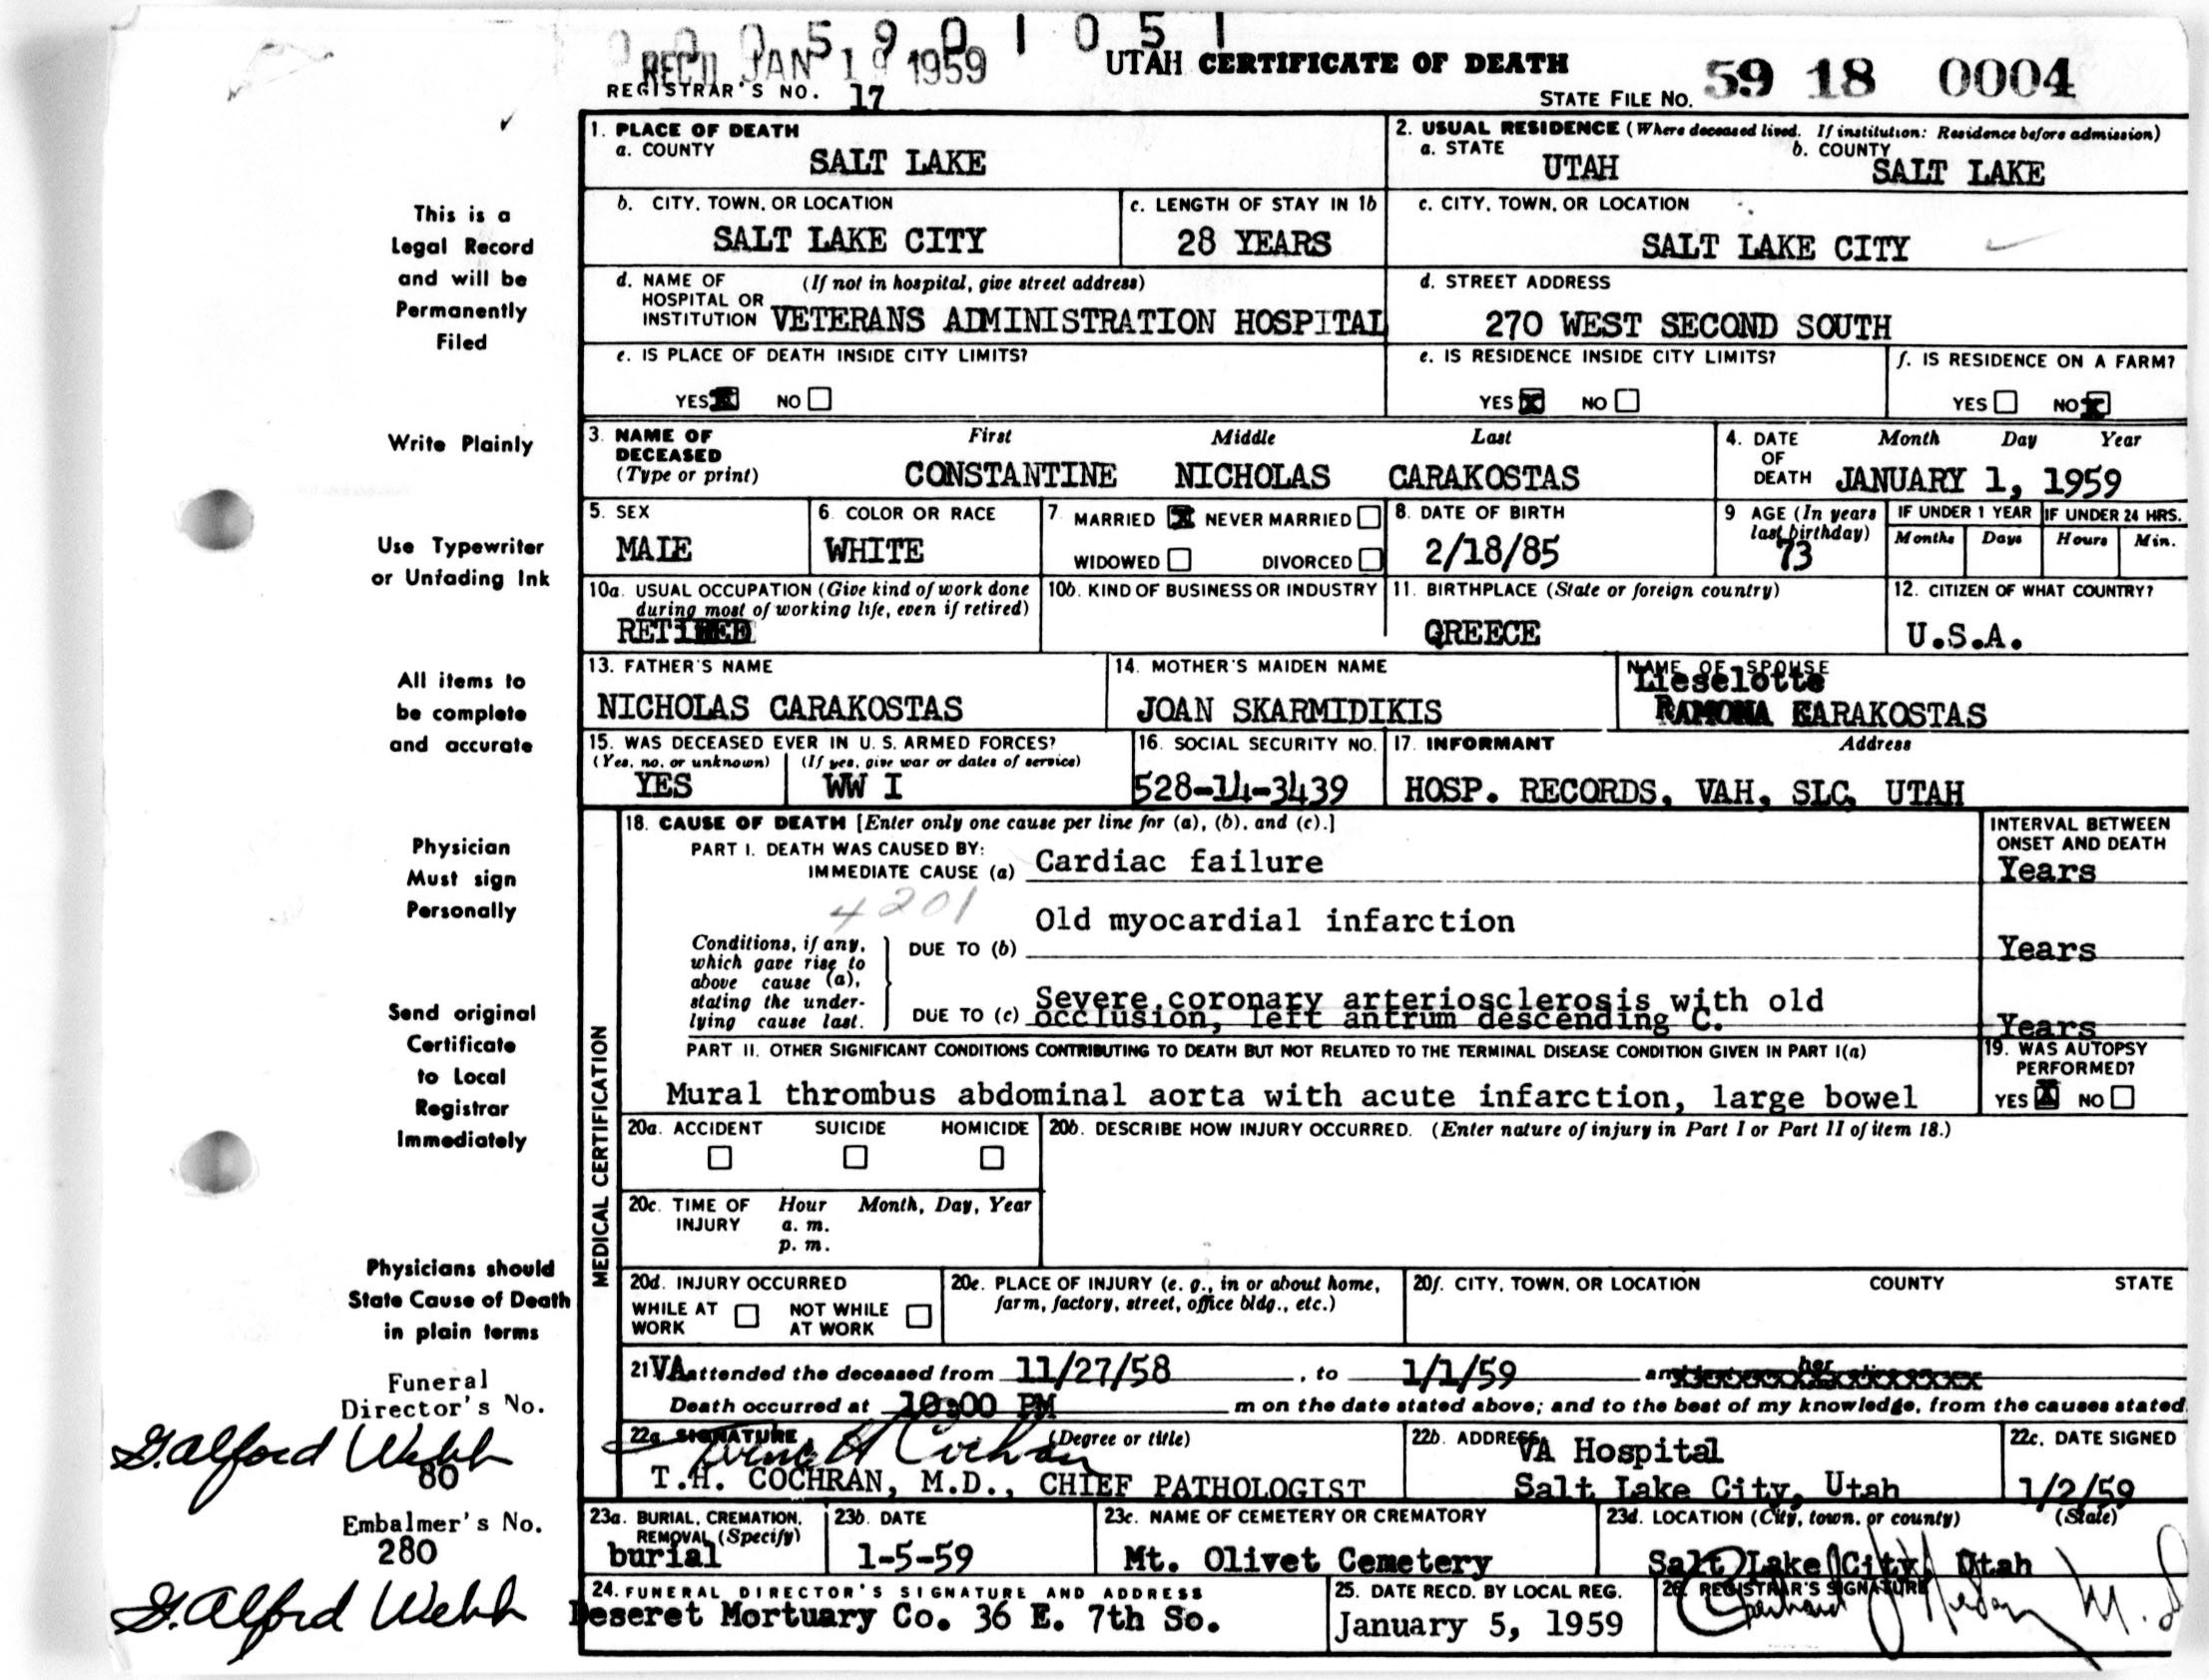 0 0 0 5 9 0 1 0 5 1
REC'D JAN 19 1959
UTAH CERTIFICATE OF DEATH
REGISTRAR'S NO. 17
STATE FILE NO. 59 18 0004
This is a
Legal Record
and will be
Permanently
Filed
Write Plainly
Use Typewriter
or Unfading Ink
All items to
be complete
and accurate
Physician
Must sign
Personally
Send original
Certificate
to Local
Registrar
Immediately
Physicians should
State Cause of Death
in plain terms
Funeral
Director's No.
G. Alford Webb
80
Embalmer's No.
280
G. Alford Webb
1. PLACE OF DEATH
a. COUNTY SALT LAKE
2. USUAL RESIDENCE (Where deceased lived. If institution: Residence before admission)
a. STATE UTAH b. COUNTY SALT LAKE
b. CITY, TOWN, OR LOCATION SALT LAKE CITY
c. LENGTH OF STAY IN 1b 28 YEARS
c. CITY, TOWN, OR LOCATION SALT LAKE CITY
d. NAME OF HOSPITAL OR INSTITUTION (If not in hospital, give street address) VETERANS ADMINISTRATION HOSPITAL
d. STREET ADDRESS 270 WEST SECOND SOUTH
e. IS PLACE OF DEATH INSIDE CITY LIMITS?
YES X NO
e. IS RESIDENCE INSIDE CITY LIMITS?
YES X NO
f. IS RESIDENCE ON A FARM?
YES NO X
3. NAME OF DECEASED (Type or print)
First Middle Last
CONSTANTINE NICHOLAS CARAKOSTAS
4. DATE OF DEATH Month Day Year
JANUARY 1, 1959
5. SEX MALE
6. COLOR OR RACE WHITE
7. MARRIED X NEVER MARRIED
WIDOWED DIVORCED
8. DATE OF BIRTH 2/18/85
9 AGE (In years last birthday) 73
IF UNDER 1 YEAR Months Days
IF UNDER 24 HRS. Hours Min.
10a. USUAL OCCUPATION (Give kind of work done during most of working life, even if retired)
RETIRED
10b. KIND OF BUSINESS OR INDUSTRY
11. BIRTHPLACE (State or foreign country)
GREECE
12. CITIZEN OF WHAT COUNTRY?
U.S.A.
13. FATHER'S NAME
NICHOLAS CARAKOSTAS
14. MOTHER'S MAIDEN NAME
JOAN SKARMIDIKIS
NAME OF SPOUSE
Lieselotte
RAMONA KARAKOSTAS
15. WAS DECEASED EVER IN U. S. ARMED FORCES?
(Yes, no, or unknown) (If yes, give war or dates of service)
YES WW I
16. SOCIAL SECURITY NO.
528-14-3439
17. INFORMANT Address
HOSP. RECORDS, VAH, SLC, UTAH
MEDICAL CERTIFICATION
18. CAUSE OF DEATH [Enter only one cause per line for (a), (b), and (c).]
INTERVAL BETWEEN ONSET AND DEATH
PART I. DEATH WAS CAUSED BY:
IMMEDIATE CAUSE (a) Cardiac failure Years
4201
Conditions, if any, which gave rise to above cause (a), stating the underlying cause last.
DUE TO (b) Old myocardial infarction Years
DUE TO (c) Severe coronary arteriosclerosis with old
occlusion, left antrum descending C. Years
PART II. OTHER SIGNIFICANT CONDITIONS CONTRIBUTING TO DEATH BUT NOT RELATED TO THE TERMINAL DISEASE CONDITION GIVEN IN PART I(a)
Mural thrombus abdominal aorta with acute infarction, large bowel
19. WAS AUTOPSY PERFORMED?
YES X NO
20a. ACCIDENT SUICIDE HOMICIDE
20b. DESCRIBE HOW INJURY OCCURRED. (Enter nature of injury in Part I or Part II of item 18.)
20c. TIME OF INJURY Hour Month, Day, Year
a. m.
p. m.
20d. INJURY OCCURRED
WHILE AT WORK NOT WHILE AT WORK
20e. PLACE OF INJURY (e. g., in or about home, farm, factory, street, office bldg., etc.)
20f. CITY, TOWN, OR LOCATION COUNTY STATE
21. VA attended the deceased from 11/27/58, to 1/1/59 an her
Death occurred at 10:00 PM m on the date stated above; and to the best of my knowledge, from the causes stated
22a. SIGNATURE (Degree or title)
T.H. COCHRAN, M.D., CHIEF PATHOLOGIST
22b. ADDRESS VA Hospital
Salt Lake City, Utah
22c. DATE SIGNED
1/2/59
23a. BURIAL, CREMATION, REMOVAL (Specify)
burial
23b. DATE
1-5-59
23c. NAME OF CEMETERY OR CREMATORY
Mt. Olivet Cemetery
23d. LOCATION (City, town, or county) (State)
Salt Lake City Utah
24. FUNERAL DIRECTOR'S SIGNATURE AND ADDRESS
Deseret Mortuary Co. 36 E. 7th So.
25. DATE RECD. BY LOCAL REG.
January 5, 1959
26. REGISTRAR'S SIGNATURE